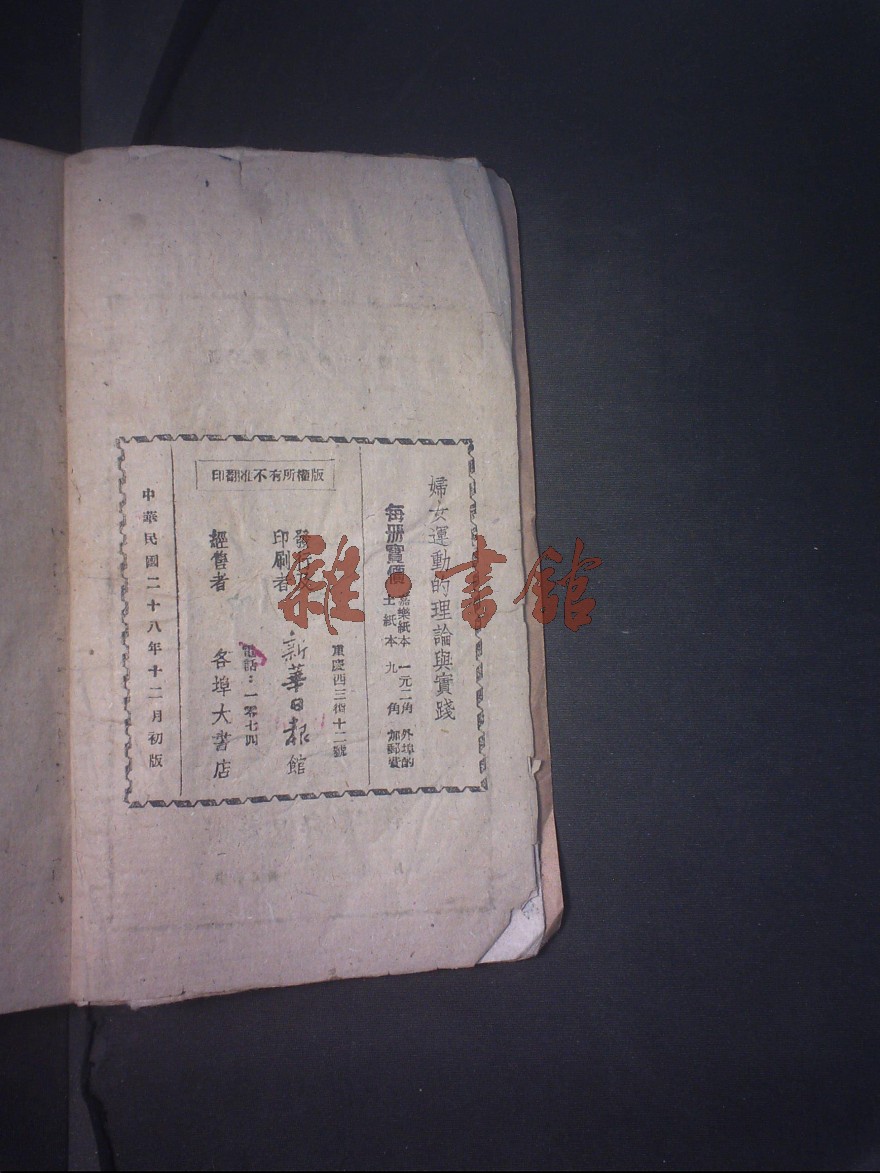 婦女運動的理論與實踐
每册實價
嘉樂紙本 一元二角
土紙本 九角
外埠酌加郵費
重慶西三街十二號
發行及
印刷者
新華日報館
電話：一零七四
經售者 各埠大書店
版權所有不准翻印
中華民國二十八年十二月初版
雜·書館